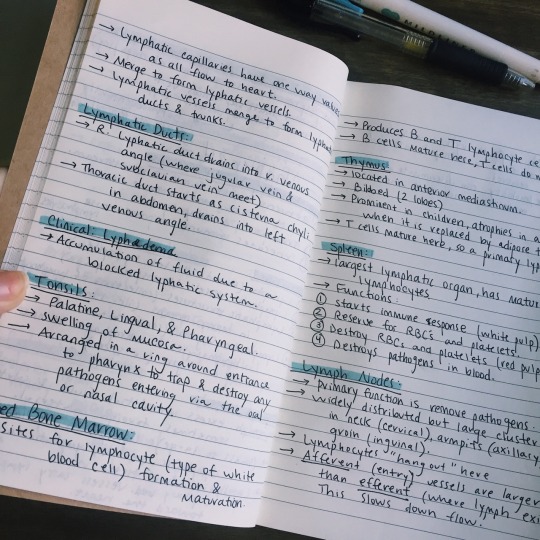 → Lymphatic capillaries have one way valves
as all flow to heart.
→ Merge to form lyphatic vessels.
→ Lymphatic vessels merge to form lyphatic
ducts & trunks.
Lymphatic Ducts:
→ R. Lyphatic duct drains into r. venous
angle (where jugular vein &
subclavian vein meet)
→ Thoracic duct starts as cisterna chyli
in abdomen, drains into left
venous angle.
Clinical: Lyphedema
→ Accumulation of fluid due to a
blocked lyphatic system.
Tonsils:
→ Palatine, Lingual, & Pharyngeal.
→ swelling of mucosa.
→ Arranged in a ring around entrance
to pharynx to trap & destroy any
pathogens entering via the oral
or nasal cavity.
ed Bone Marrow:
Sites for lymphocyte (type of white
blood cell) formation &
maturation.
→ Produces B and T lymphocyte ce
→ B cells mature here, T cells do n
Thymus:
→ located in anterior mediastinum.
→ Bilobed (2 lobes)
→ Prominent in children, atrophies in a
when it is replaced by adipose t
→ T cells mature here, so a primary lyp
Spleen:
→ largest lymphatic organ, has matur
lymphocytes
→ Functions:
① starts immune response (white pulp)
② Reserve for RBCs and platelets.
③ Destroy RBCs and platelets (red pulp
④ Destroys pathogens in blood.
Lymph Nodes:
→ Primary function is remove pathogens.
→ Widely distributed but large cluster
in neck (cervical), armpits (axillary
groin (inguinal).
→ Lymphocytes "hang out" here
→ Afferent (entry) vessels are larger
than efferent (where lymph exi
This slows down flow.